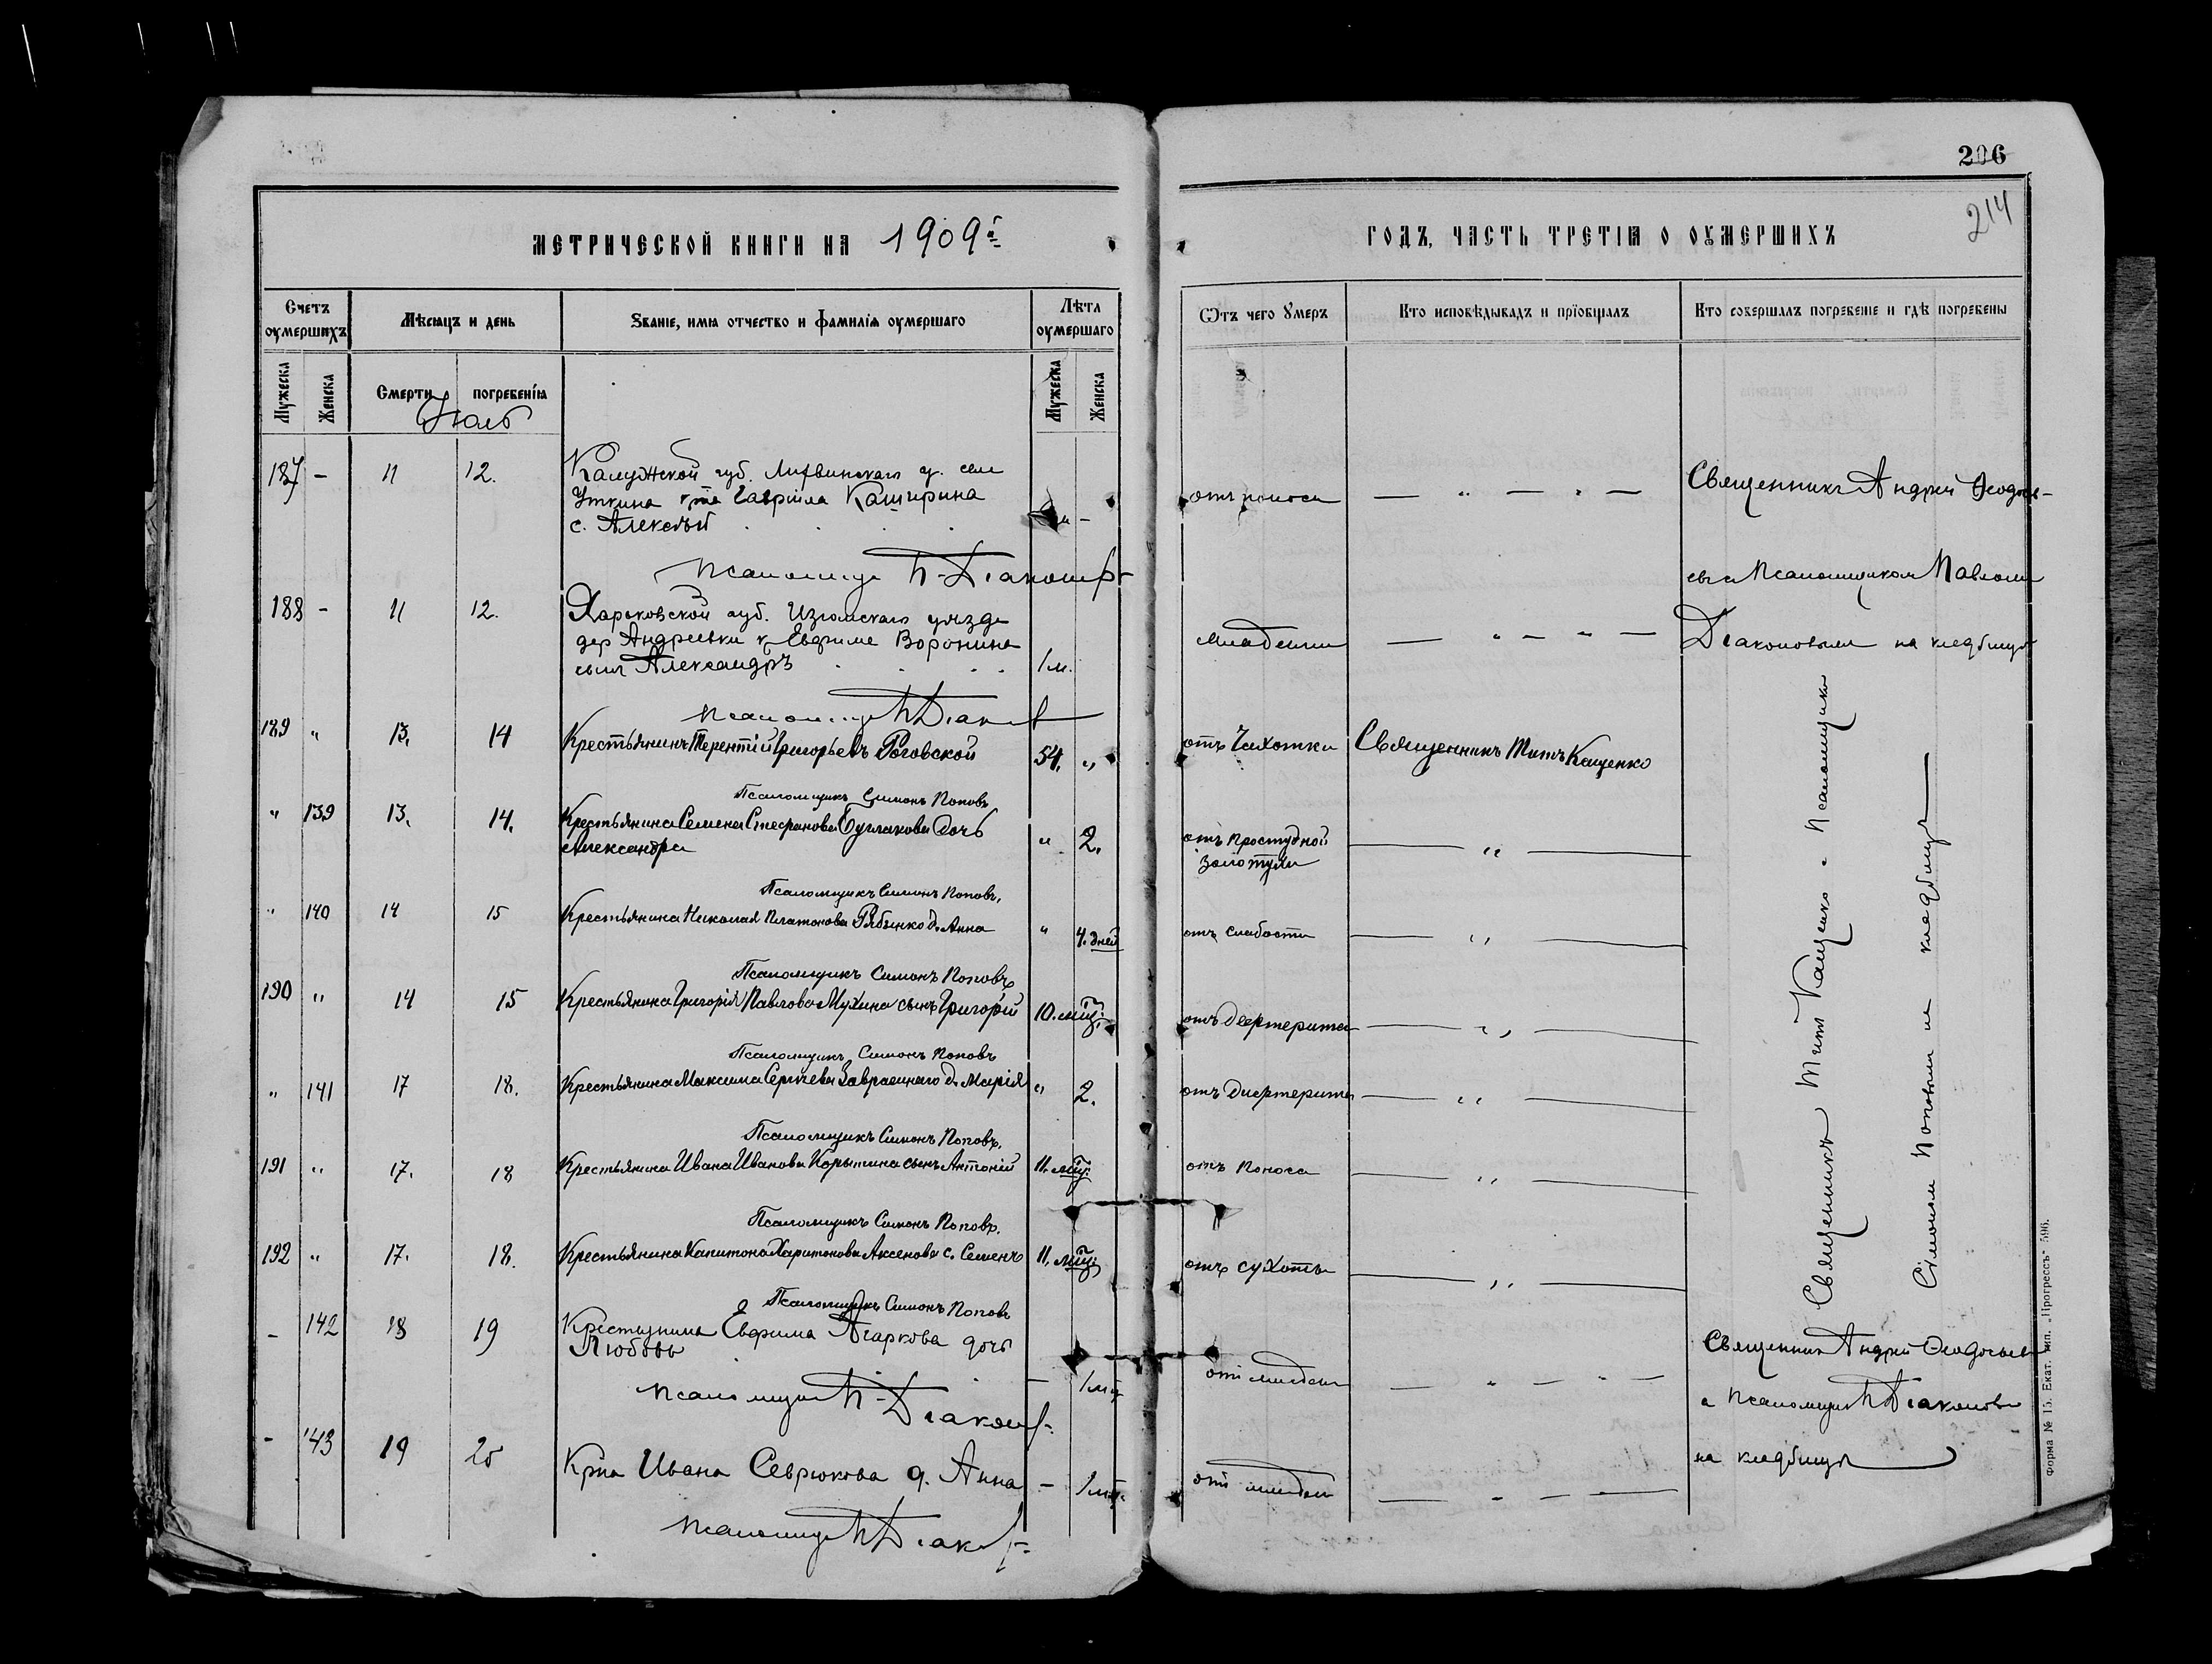 206
214
МЕТРИЧЕСКОЙ КНИГИ НА 1909й
ГОДЪ, ЧАСТЬ ТРЕТІЯ О ОУМЕРШИХЪ
Счетъ оумершихъ
Мѣсяцъ и день
Званіе, имя отчество и фамилія оумершаго
Лѣта оумершаго
Отъ чего умеръ
Кто исповѣдывалъ и прїобщалъ
Кто совершалъ погребеніе и гдѣ погребены
Мужеска
Женска
Смерти
погребенія
Мужеска
Женска
Іюль
187 - 11 12. Калужской губ. Лихвинскаго у. села
Уткина кр-на Гавріила Каширина
с. Алексѣй
отъ поноса — " — " —
Священникъ Андрей Ѳеодось-
Псаломщ. П. Діаконовъ
евъ съ Псаломщикомъ Павломъ
188 - 11 12. Харьковской губ. Изюмскаго уѣзда
дер Андреевки к Евфима Воронина
сынъ Александръ 1 м.
младенч. — " — " —
Діаконовымъ на кладбищѣ
Псаломщ. П Діаконовъ
189 " 13. 14 Крестьянинъ Терентій Григорьевъ Роговской 54. " отъ Чахотки Священникъ Титъ Кащенко
Псаломщикъ Симонъ Поповъ
" 139 13. 14. Крестьянина Семена Стефанова Буглакова дочь
Александра " 2. отъ простудной
золотухи — " —
Псаломщикъ Симонъ Поповъ.
" 140 14 15 Крестьянина Николая Платонова Рябынко д. Анна " 4. дней отъ слабости — " —
Псаломщикъ Симонъ Поповъ
190 " 14 15 Крестьянина Григорія Павлова Мухина сынъ Григорій 10. мѣц. отъ дефтерита — " —
Псаломщикъ Симонъ Поповъ
" 141 17 18. Крестьянина Максима Сергѣева д. Марія " 2. отъ дифтерита — " —
Псаломщикъ Симонъ Поповъ.
191 " 17. 18 Крестьянина Ивана Иванова Корытина сынъ Антоній 11. мѣц. отъ поноса — " —
Псаломщикъ Симонъ Поповъ.
192 " 17. 18. Крестьянина Капитона Харитонова Аксенова с. Семенъ 11. мѣц. отъ сухоты — " —
Псаломщикъ Симонъ Поповъ
Священникъ Титъ Кащенко с Псаломщикомъ
Симономъ Поповымъ на кладбищѣ
- 142 18 19 Крестьянина Евфима Агаркова дочь
Любовь
- 1 мѣц. отъ младен. — " — " —
Священникъ Андрей Ѳеодосьевъ
Псаломщикъ П. Діаконовъ
и Псаломщикъ П Діаконовъ
на кладбищѣ
- 143 19 20 Крна Ивана Севрюкова д. Анна - 1 мѣц. отъ младен — - — —
Псаломщ. П Діаконовъ
Форма № 15. Екат. тип. „Прогрессъ" 596.